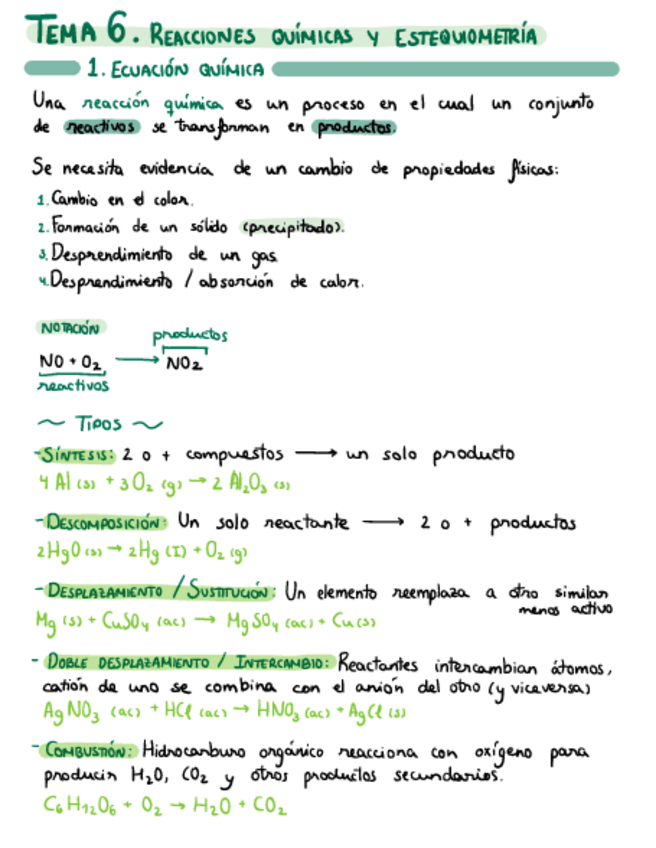 TEMA 6. REACCIONES QUÍMICAS Y ESTEQUIOMETRÍA
1. ECUACIÓN QUÍMICA
Una reacción química es un proceso en el cual un conjunto
de reactivos se transforman en productos.
Se necesita evidencia de un cambio de propiedades físicas:
1. Cambio en el color.
2. Formación de un sólido (precipitado).
3. Desprendimiento de un gas
4. Desprendimiento / absorción de calor.
NOTACIÓN
productos
NO + O₂ → NO₂
reactivos
~ TIPOS ~
- SÍNTESIS: 2 o + compuestos → un solo producto
4 Al (s) + 3 O₂ (g) → 2 Al₂O₃ (s)
- DESCOMPOSICIÓN: Un solo reactante → 2 o + productos
2HgO (s) → 2Hg (I) + O₂ (g)
- DESPLAZAMIENTO / SUSTITUCIÓN: Un elemento reemplaza a otro similar
menos activo
Mg (s) + CuSO₄ (ac) → MgSO₄ (ac) + Cu (s)
- DOBLE DESPLAZAMIENTO / INTERCAMBIO: Reactantes intercambian átomos,
catión de uno se combina con el anión del otro (y viceversa)
AgNO₃ (ac) + HCl (ac) → HNO₃ (ac) + AgCl (s)
- COMBUSTIÓN: Hidrocarburo orgánico reacciona con oxígeno para
producir H₂O, CO₂ y otros productos secundarios.
C₆H₁₂O₆ + O₂ → H₂O + CO₂